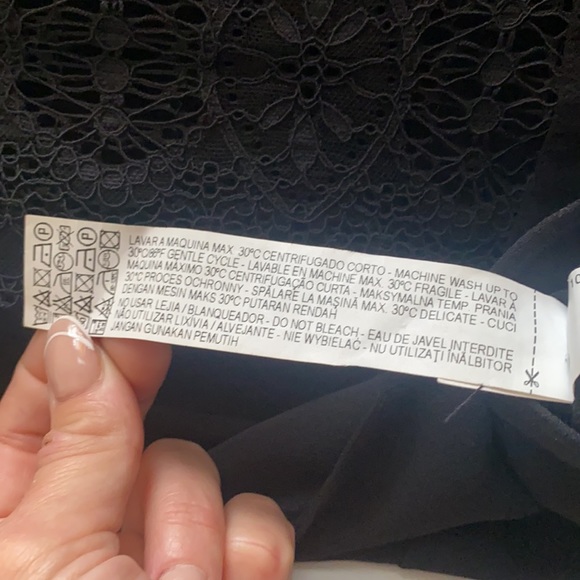 LAVAR A MAQUINA MAX. 30ºC CENTRIFUGADO CORTO - MACHINE WASH UP TO
30ºC/86ºF GENTLE CYCLE - LAVABLE EN MACHINE MAX. 30ºC FRAGILE - LAVAR À
MAQUINA MÁXIMO 30ºC CENTRIFUGAÇÃO CURTA - MAKSYMALNA TEMP. PRANIA
30ºC PROCES OCHRONNY - SPĂLARE LA MAŞINĂ MAX. 30ºC DELICATE - CUCI
DENGAN MESIN MAKS 30ºC PUTARAN RENDAH
NO USAR LEJIA / BLANQUEADOR - DO NOT BLEACH - EAU DE JAVEL INTERDITE
NÃO UTILIZAR LIXÍVIA / ALVEJANTE - NIE WYBIELAĆ - NU UTILIZAŢI ÎNĂLBITOR
JANGAN GUNAKAN PEMUTIH